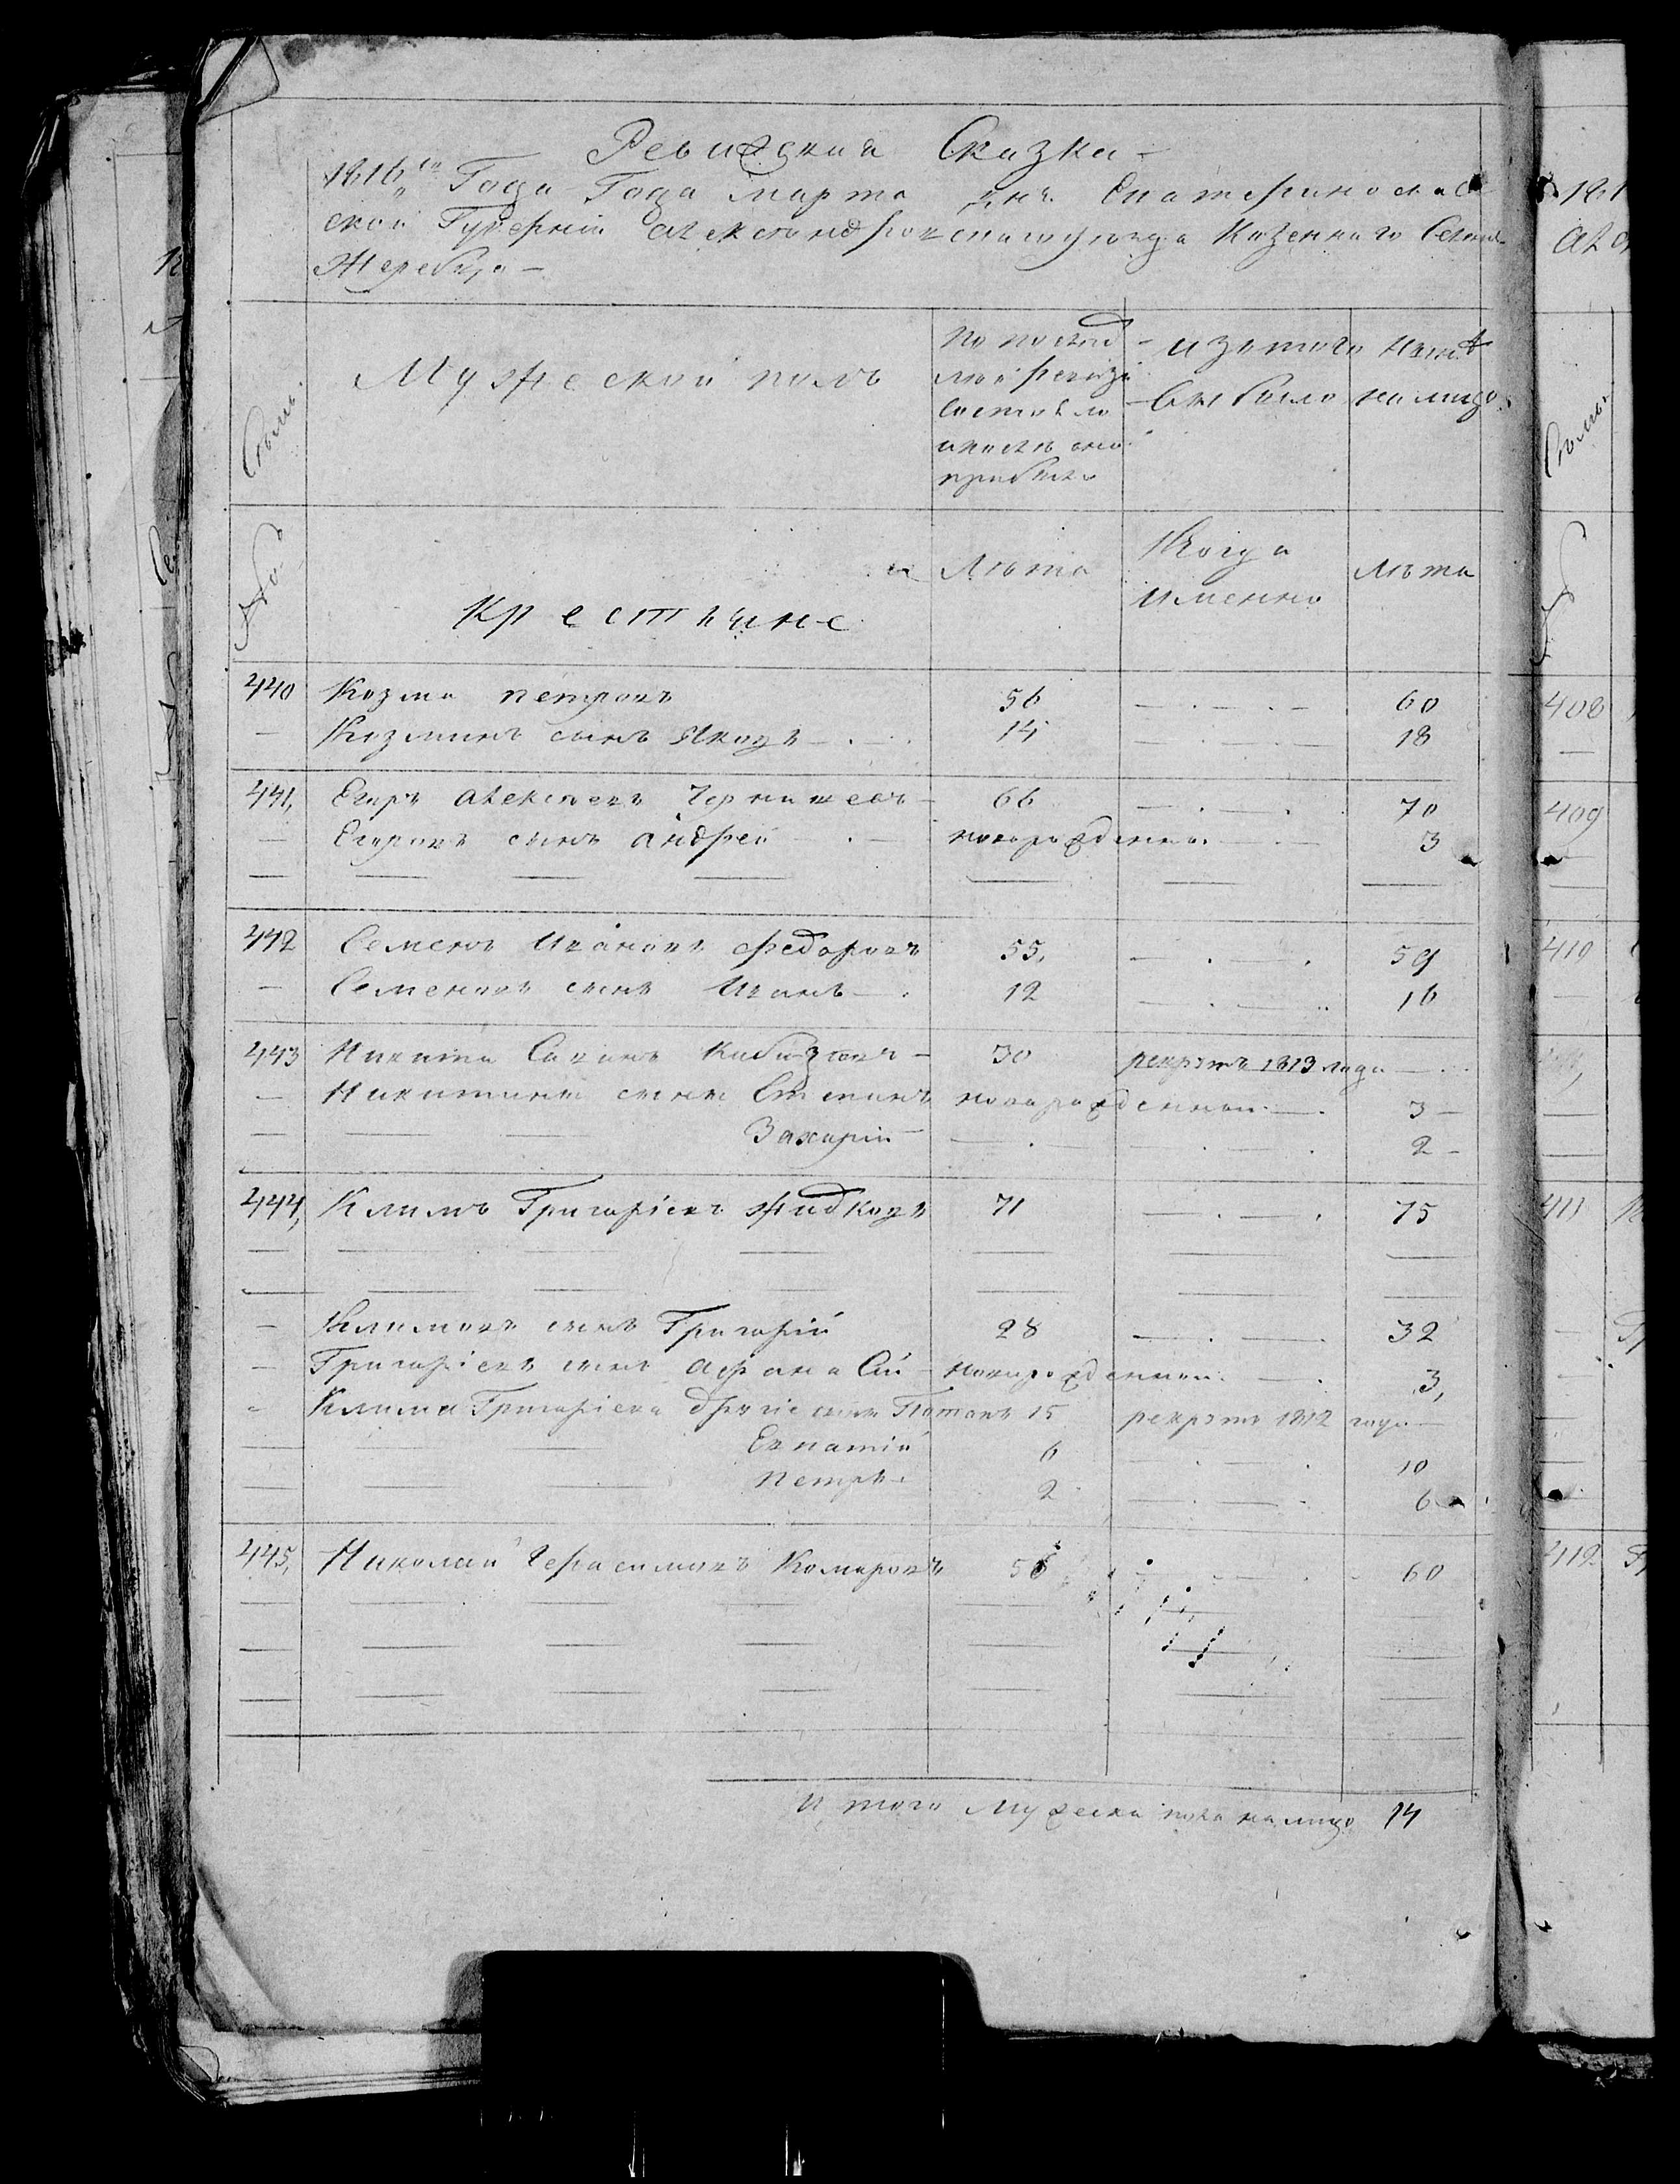 Ревижская Сказка
1816го Года Года марта дня Екатеринослав
ской Губерніи Александровскаго уезда Казеннаго Селения
Жеребца
Семьи
Мужеской полъ
по послед
ней ревизи
состояло
и после оной
прибыло
изтого числа
выбыло
ныне
налицо
Крестьяне
лета
Когда
именно
лета
440 Козма петровъ 56 60
Козминъ сынъ Яковъ 14 18
441, Егоръ алексеевъ Чернишевъ 66 70
Егоровъ сынъ андрей новорожденны 3
442 Семенъ Ивановъ федоровъ 55, 59
Семеновъ сынъ Иванъ 12 16
443 Никита Савинъ 30 рекрутъ 1813 года
Никитины сыны Степанъ новорожденныи 3
Захарій 2
444, Климъ Григоріевъ Жидковъ 71 75
Климовъ сынъ Григорій 28 32
Григоріевъ сынъ афанасій новорожденныи 3,
Клима Григоріева другіе сыны Потапъ 15 рекрутъ 1812 года
Евпатій 6 10
петръ 2 6
445, Николай Герасимовъ Комаровъ 56 60
Итого Мужеска пола налицо 14
408
409
410
411
412